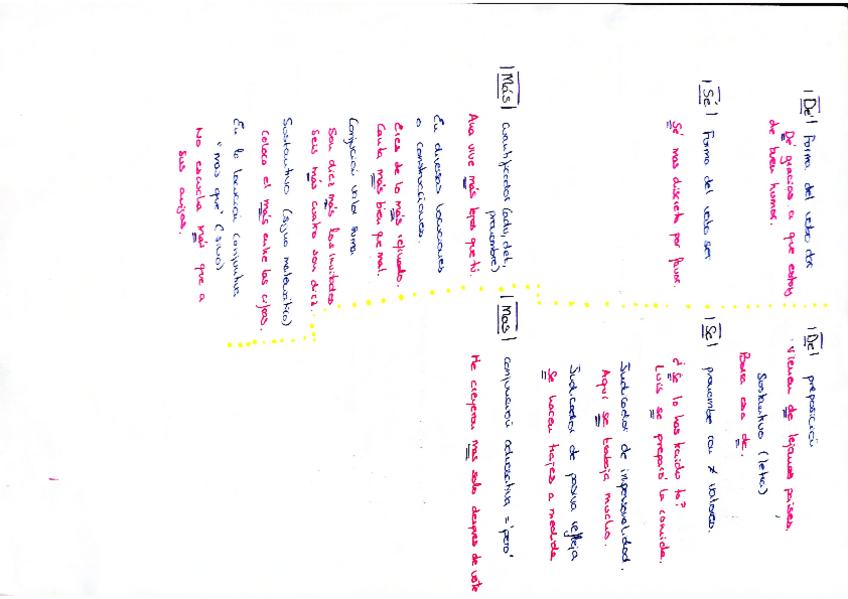 |Dé| Forma del verbo dar
Dé gracias a que estoy
de buen humor.
|Sé| Forma del verbo ser
Sé más discreto por favor.
|Más| cuantificador (adv, det,
pronombre)
Ana vive más lejos que tú.
En diversas locuciones
o construcciones.
Eres de lo más refinado.
Canta más bien que mal.
Conjunción valor suma
Son diez más los invitados
Seis más cuatro son diez.
Sustantivo (signo matemático)
Coloca el más entre las cifras.
En la locución conjuntiva
"más que" (sino)
No escucha más que a
sus amigos.
|De| preposición
Vienen de lejanos países.
Sustantivo (letra)
Borra esa de.
|Se| pronombre con ≠ valores.
¿Se lo has traído tú?
Luis se preparó la comida.
Indicador de impersonalidad.
Aquí se trabaja mucho.
Indicador de pasiva refleja
Se hacen trajes a medida
|Mas| conjunción adversativa = 'pero'
Me creyeron mas solo después de verte